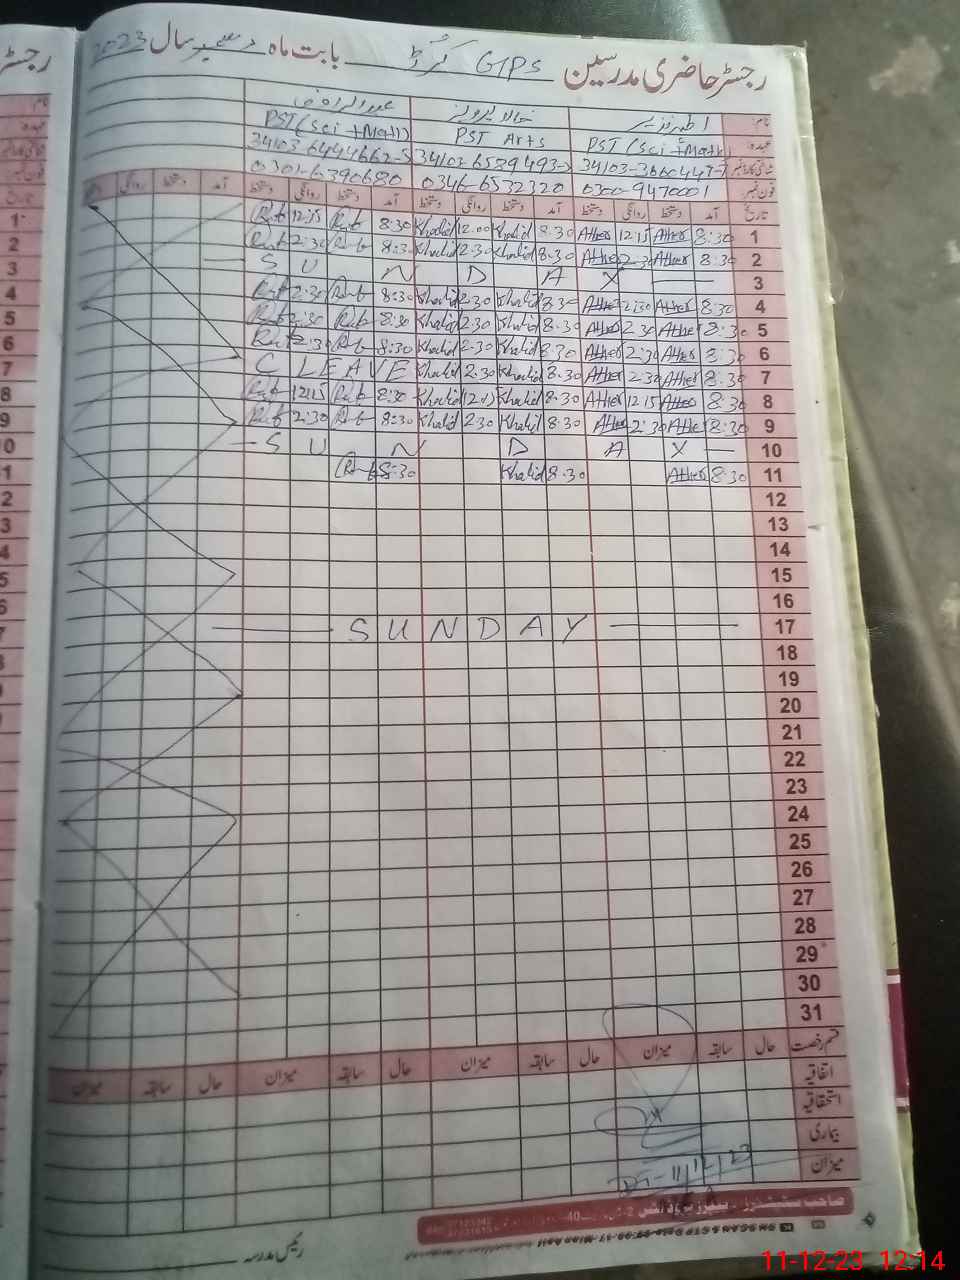 رجسٹر حاضری مدرسین GPS کرڈ بابت ماہ دسمبر سال 2023
نام: اطہر نذیر خالد پرویز
عہدہ: PST (Sci + Math) PST Arts PST (Sci + Math)
فون نمبر: 0300-9470001 0346-6532320 0301-6390680
تاریخ آمد دستخط روانگی دستخط آمد دستخط روانگی دستخط آمد دستخط روانگی دستخط آمد دستخط روانگی
1 8:30 Ather 12:15 Ather 8.30 Khalid 12.00 Khalid 8:30 Rab 12:15 Rab
2 8:30 Ather 2:30 Ather 8.30 Khalid 2.30 Khalid 8:30 Rab 2:30 Rab
3 S U N D A Y
4 8:30 Ather 2:30 Ather 8.30 Khalid 2.30 Khalid 8:30 Rab 2:30 Rab
5 8:30 Ather 2:30 Ather 8.30 Khalid 2.30 Khalid 8:30 Rab 2:30 Rab
6 8:30 Ather 2:30 Ather 8.30 Khalid 2.30 Khalid 8:30 Rab 2:30 Rab
7 8:30 Ather 2:30 Ather 8.30 Khalid 2.30 Khalid C LEAVE
8 8:30 Ather 12:15 Ather 8.30 Khalid 12.15 Khalid 8:30 Rab 12:15 Rab
9 8:30 Ather 2:30 Ather 8.30 Khalid 2.30 Khalid 8:30 Rab 2:30 Rab
10 S U N D A Y
11 8:30 Ather 8.30 Khalid 8:30 Rab
12
13
14
15
16
17 SUNDAY
18
19
20
21
22
23
24
25
26
27
28
29
30
31
قسم رخصت حال سابقہ میزان حال سابقہ میزان حال سابقہ میزان حال سابقہ میزان
اتفاقیہ
استحقاقیہ
بیماری
میزان
Dt-11/12/23
رئیس مدرسہ
11-12-23 12:14